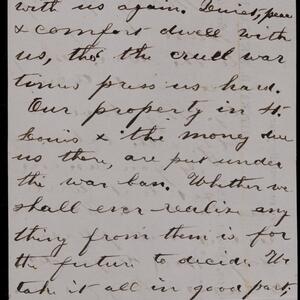 with us again. Quiet, peace
& comfort dwell with
us, tho' the cruel war
times press us hard.
Our property in St.
Louis & the money due
us there, are put under
the war ban. Whether we
shall ever realize any
thing from them is for
the future to decide. We
take it all in good part.